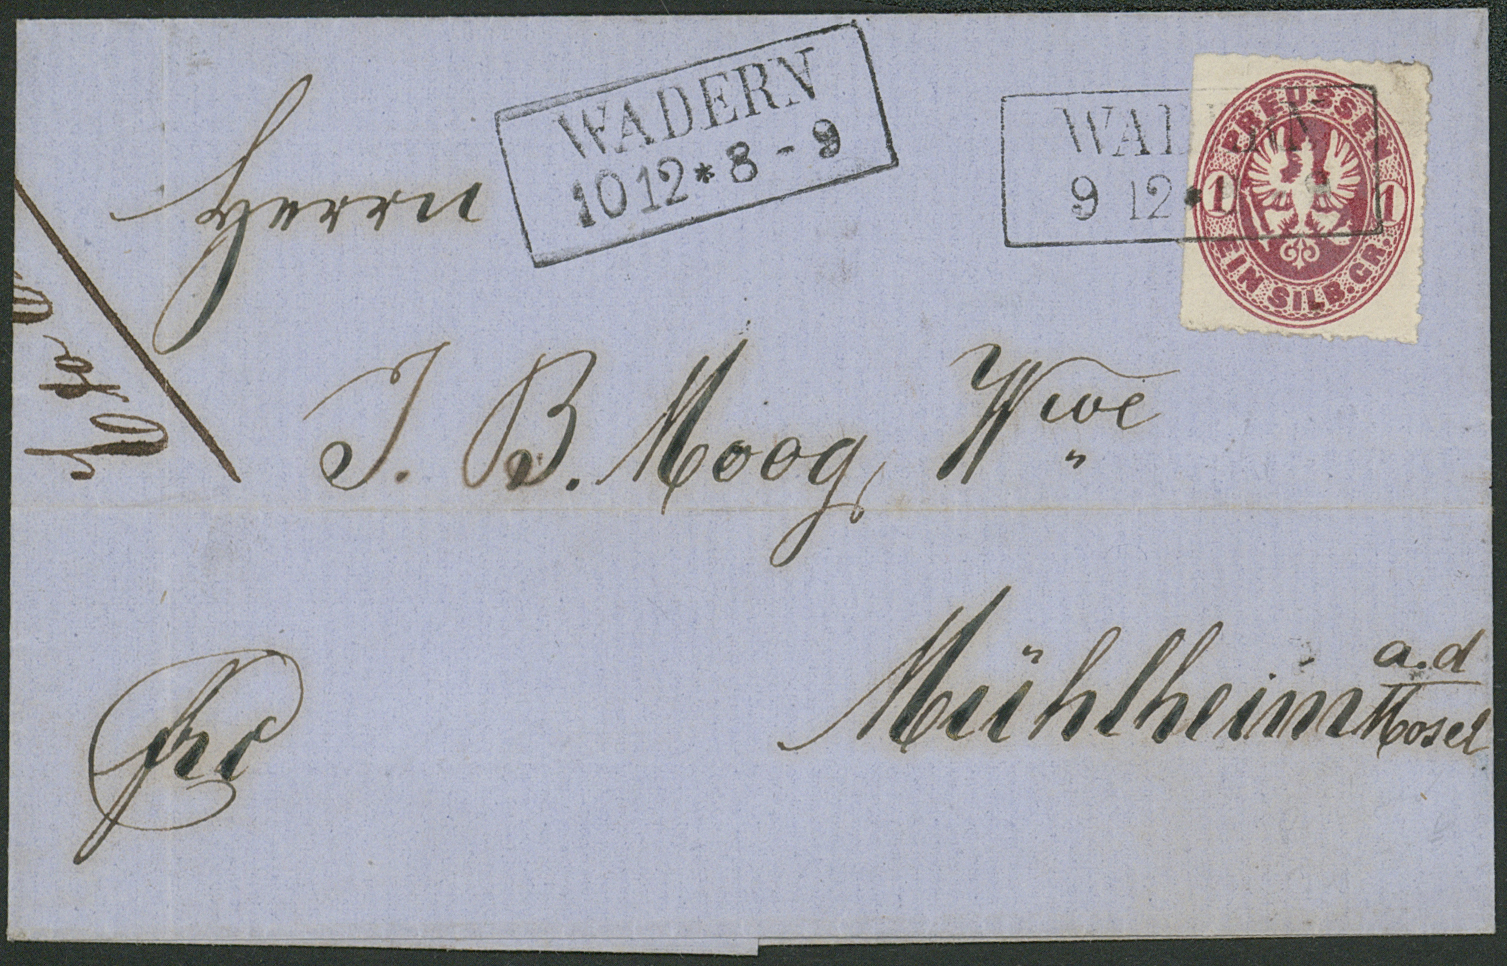 WADERN
10 12 * 8 - 9
WADERN
9 12 *
PREUSSEN
1 1
EIN SILB. GR.
Herrn
J. B. Moog, Wwe
Mühlheim a.d
Mosel
frc